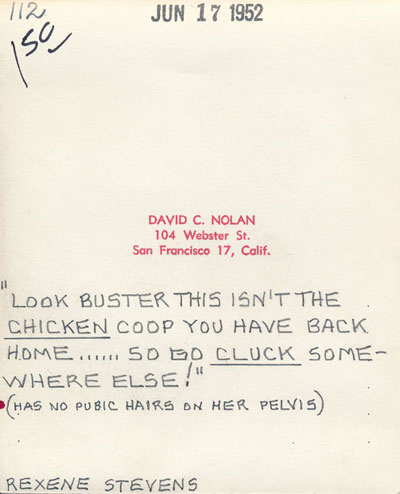 112
150
JUN 17 1952
DAVID C. NOLAN
104 Webster St.
San Francisco 17, Calif.
"LOOK BUSTER THIS ISN'T THE
CHICKEN COOP YOU HAVE BACK
HOME...... SO GO CLUCK SOME-
WHERE ELSE!"
(HAS NO PUBIC HAIRS ON HER PELVIS)
REXENE STEVENS